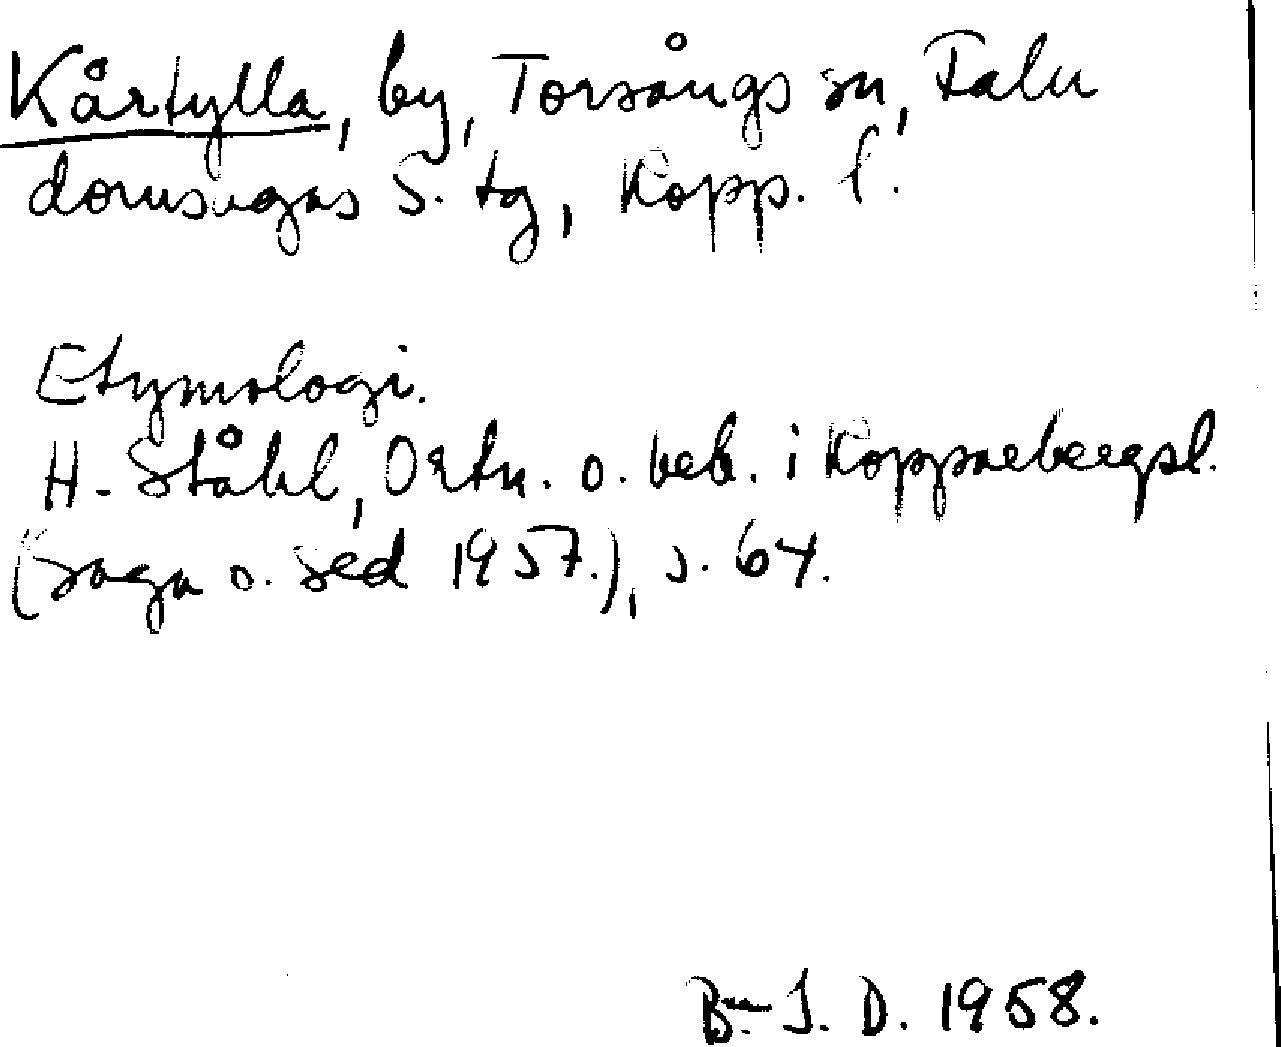 Kårtylla, by, Torsångs sn, Falu
domsagas S. tg, Kopp. l.
Etymologi.
H. Ståhl, Ortn. o. beb. i Kopparbergsl.
(Saga o. Sed 1957.), s. 64.
J. D. 1958.